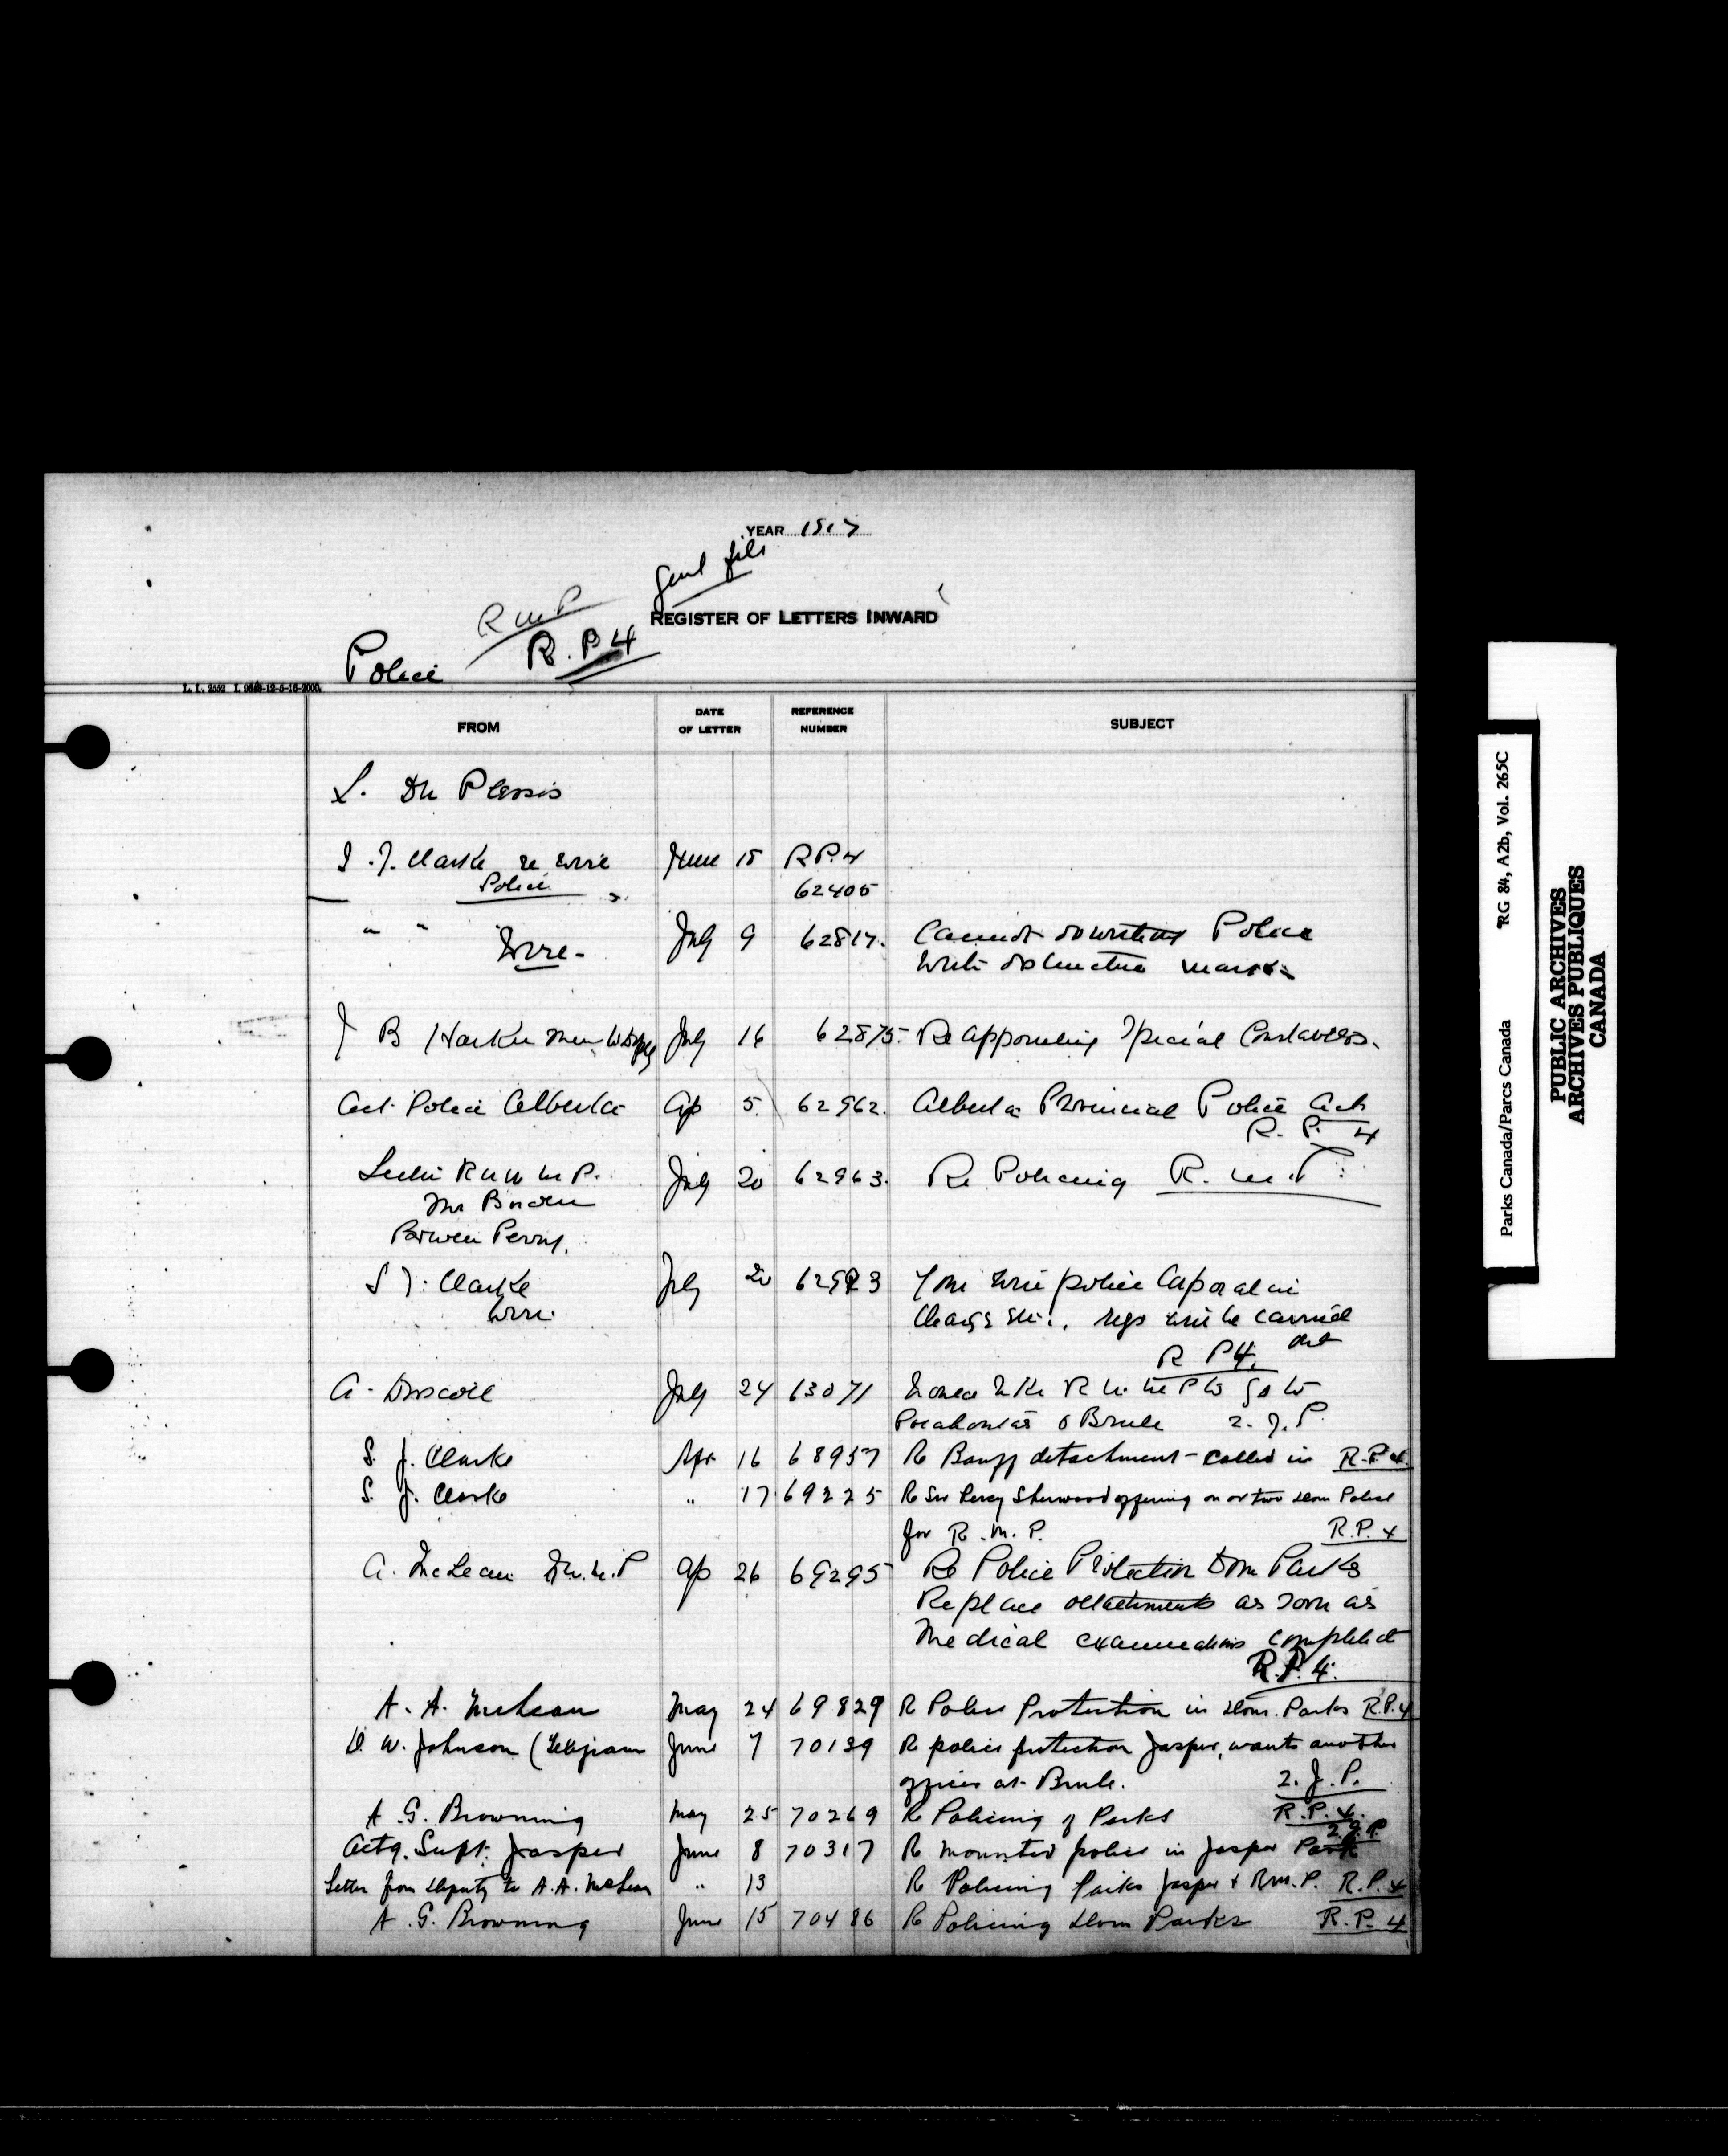 YEAR 1917
Genl file
RMP
REGISTER OF LETTERS INWARD
R.P 4
Police
FROM DATE OF LETTER REFERENCE NUMBER SUBJECT
L. Du Plessis
S. J. Clarke re wire June 15 R.P. 4
Police 62405
" " July 9 62817. Cannot Police
Wire - with
J B Harkin July 16 62875. Re appointing Special Constables.
Act. Police Alberta Ap 5. 62962. Alberta Provincial Police Act
R. P. 4
July 20 62963. Re Policing R. M. P.
Perry.
S J. Clarke July 20 629 3 Your wire police Corporal in
Wire. charge regs will be carried
out
R P4.
A. Driscoll July 24 63071 R. N. W. M P to go to
Pocahontas & Brule 2. J. P.
S. J. Clarke Apr 16 68957 R Banff detachment - called in R.P 4.
S. J. Clarke " 17 69225 R Sir Percy Sherwood offering one or two Dom Police
for R. M. P. R.P. 4
A. McLean Ap 26 69295 Re Police Protection Dom Parks
Replace detachments as soon as
Medical examinations completed
R.P. 4.
A. A. McLean May 24 69829 R Police Protection in Dom. Parks R.P. 4
W. Johnson (Telegram June 7 70139 R police protection Jasper, wants another
officer at Brule. 2. J. P.
A. G. Browning May 25 70269 R Policing of Parks R.P. 4.
2. J. P.
Actg. Supt. Jasper June 8 70317 R mounted police in Jasper Park
Letter from Deputy to A.A. McLean " 13 R Policing Parks Jasper & R.M.P. R.P. 4
A. G. Browning June 15 70486 R Policing Dom Parks R.P. 4
Parks Canada/Parcs Canada RG 84, A2b, Vol. 265C
PUBLIC ARCHIVES
ARCHIVES PUBLIQUES
CANADA